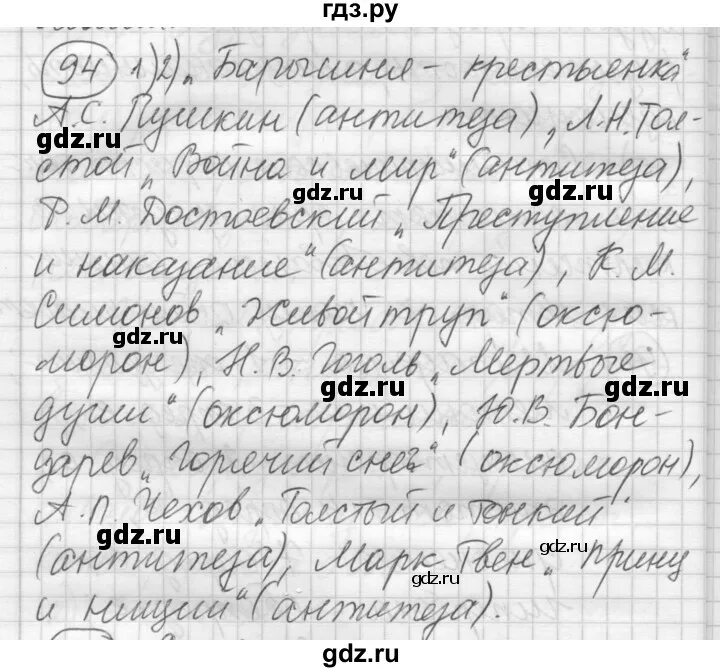 гдз.ру
94 1)2) „Барышня – крестьянка“
А.С. Пушкин (антитеза), Л.Н. Тол-
gdz.ru
стой „Война и мир“ (антитеза),
gdz.ru gdz.ru
Ф.М. Достоевский „Преступление
и наказание“ (антитеза), К.М.
gdz.ru
Симонов „Живой труп“ (оксю-
gdz.ru
морон), Н.В. Гоголь „Мертвые
gdz.ru gdz.ru
души“ (оксюморон), Ю.В. Бон-
дарев „Горячий снег“ (оксюморон),
gdz.ru
А.П. Чехов „Толстый и тонкий“
gdz.ru
(антитеза), Марк Твен „Принц
gdz.ru gdz.ru
и нищий“ (антитеза).
gdz.ru